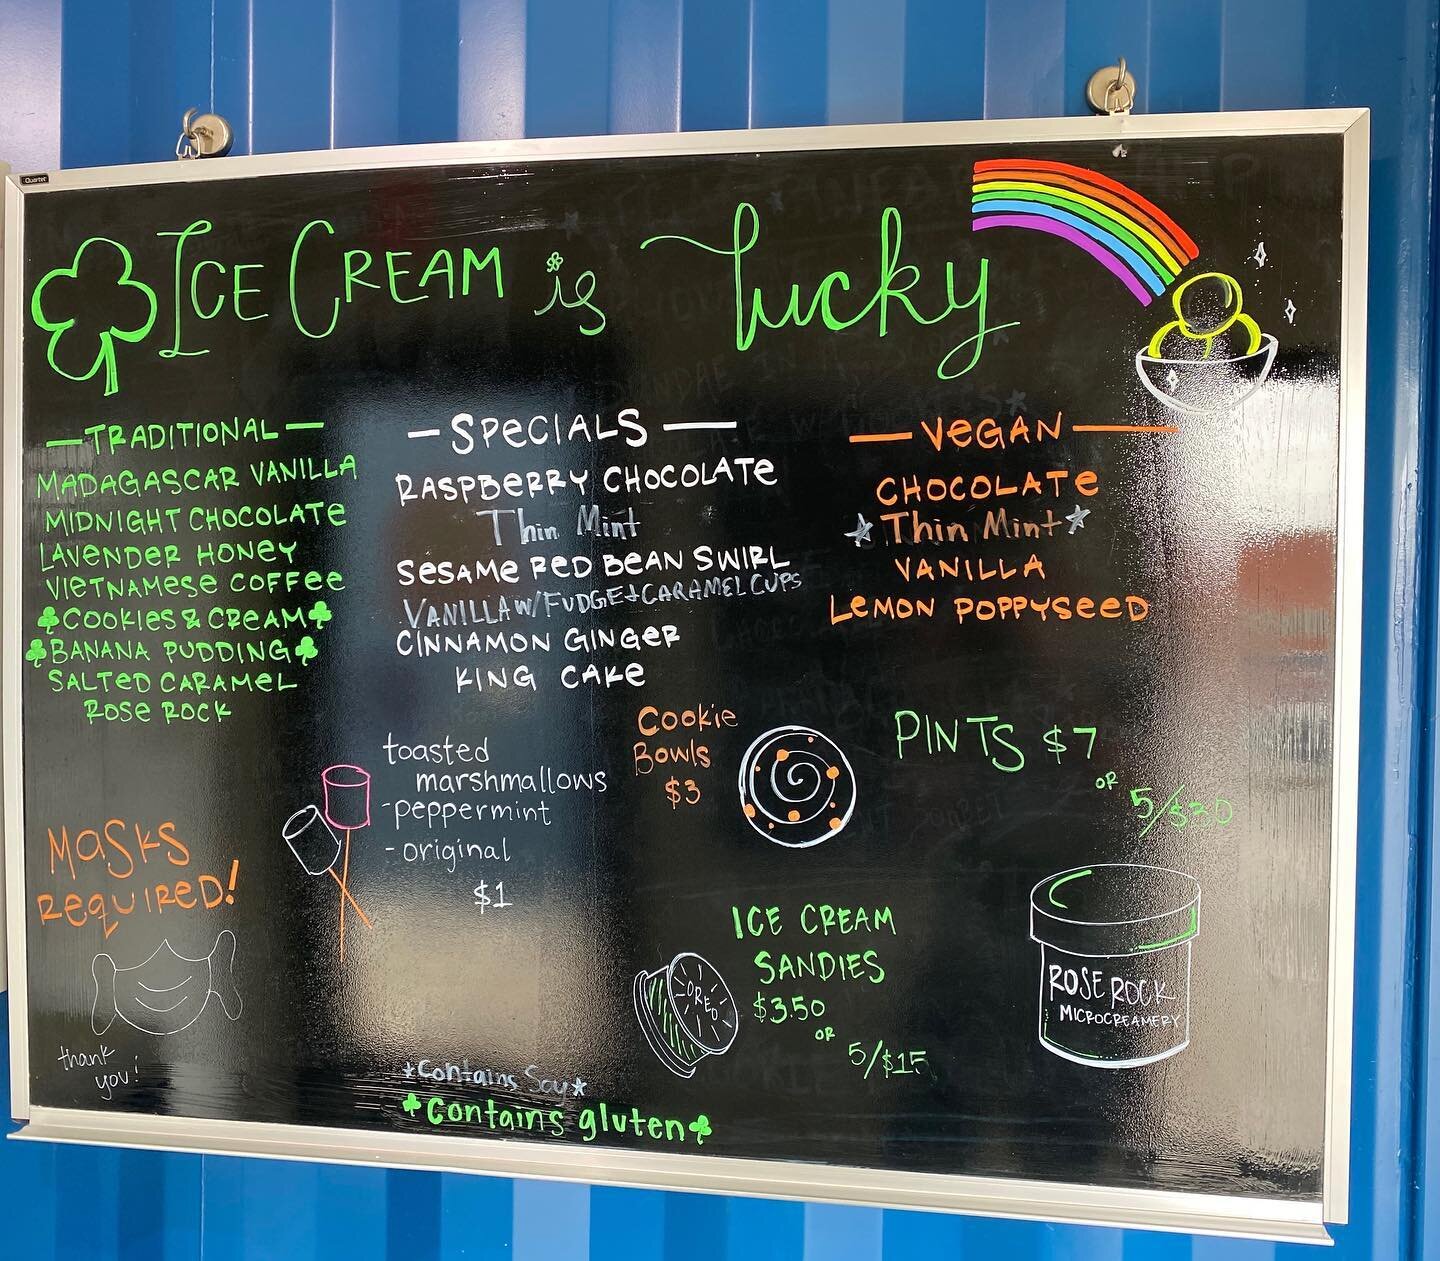 Quartet
ICE CREAM is lucky
TRADITIONAL
MADAGASCAR VANILLA
MIDNIGHT CHOCOLATE
LAVENDER HONEY
VIETNAMESE COFFEE
COOKIES & CREAM
BANANA PUDDING
SALTED CARAMEL
ROSE ROCK
SPECIALS
RASPBERRY CHOCOLATE
Thin Mint
SESAME RED BEAN SWIRL
VANILLA W/ FUDGE + CARAMEL CUPS
CINNAMON GINGER
KING CAKE
VEGAN
CHOCOLATE
Thin Mint
VANILLA
LEMON POPPYSEED
MASKS
REQUIRED!
thank
you!
toasted
marshmallows
-peppermint
-original
$1
Cookie
Bowls
$3
PINTS $7
OR
5/$30
ICE CREAM
SANDIES
$3.50
OR
5/$15
OREO
ROSE ROCK
MICROCREAMERY
*Contains Soy*
Contains gluten